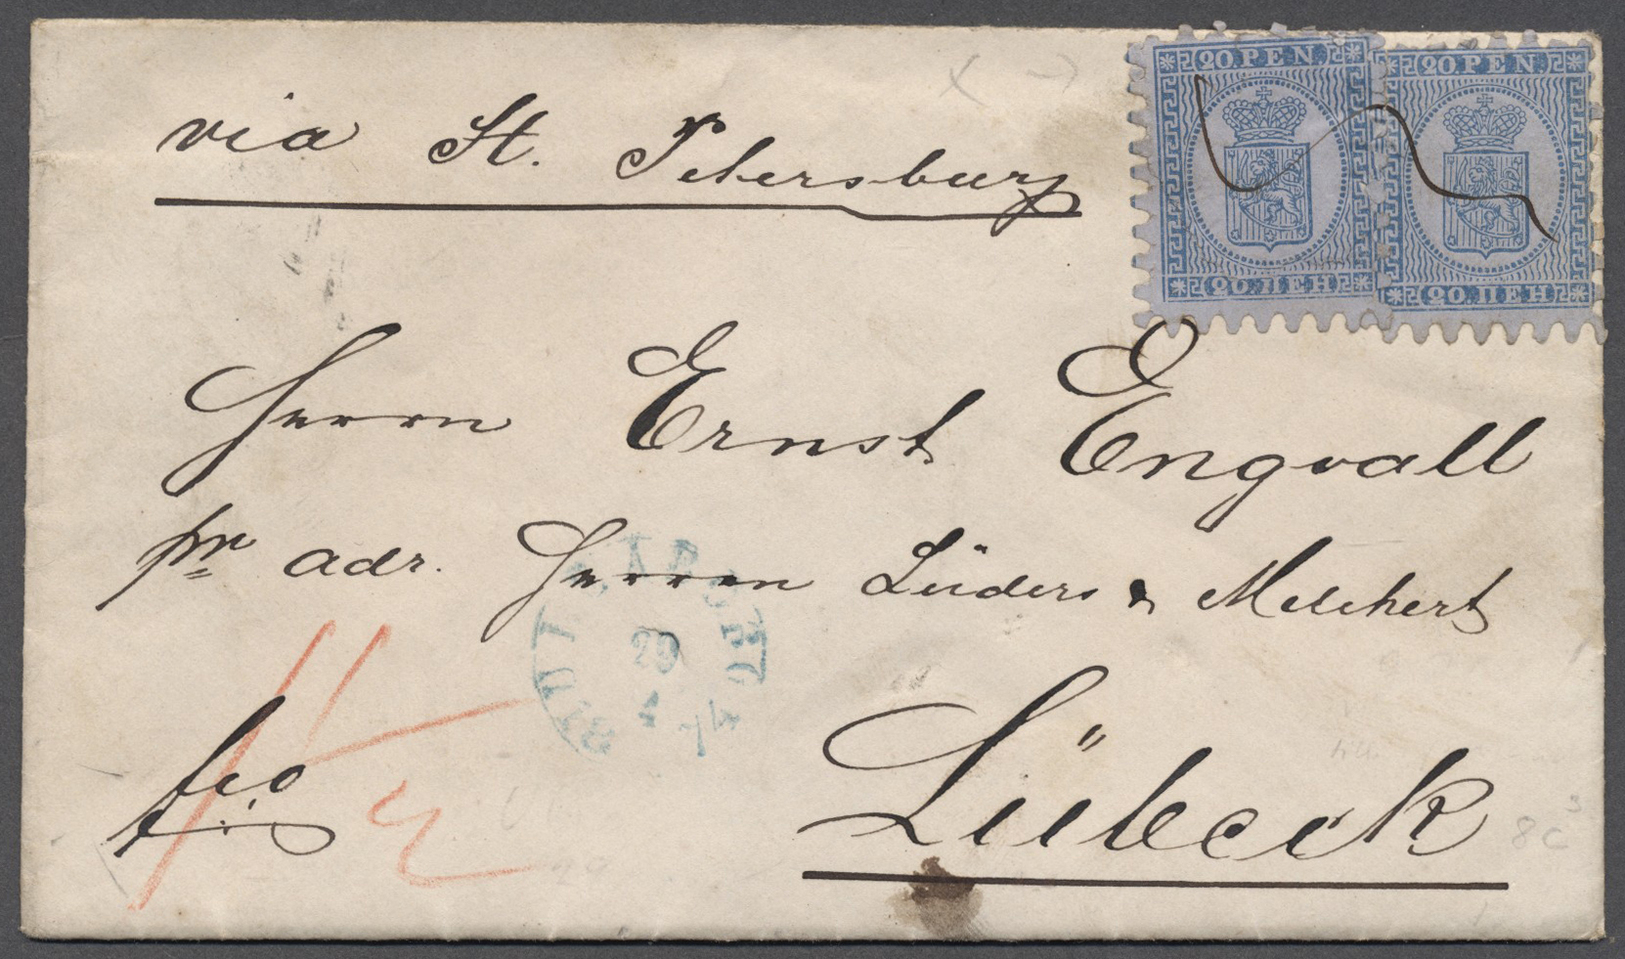 via St. Petersburg
20.PEN. 20.PEN.
20.ПЕН. 20.ПЕН.
Herrn Ernst Engvall
pr adr. Herren Lüders & Melchert
29
fco
Lübeck